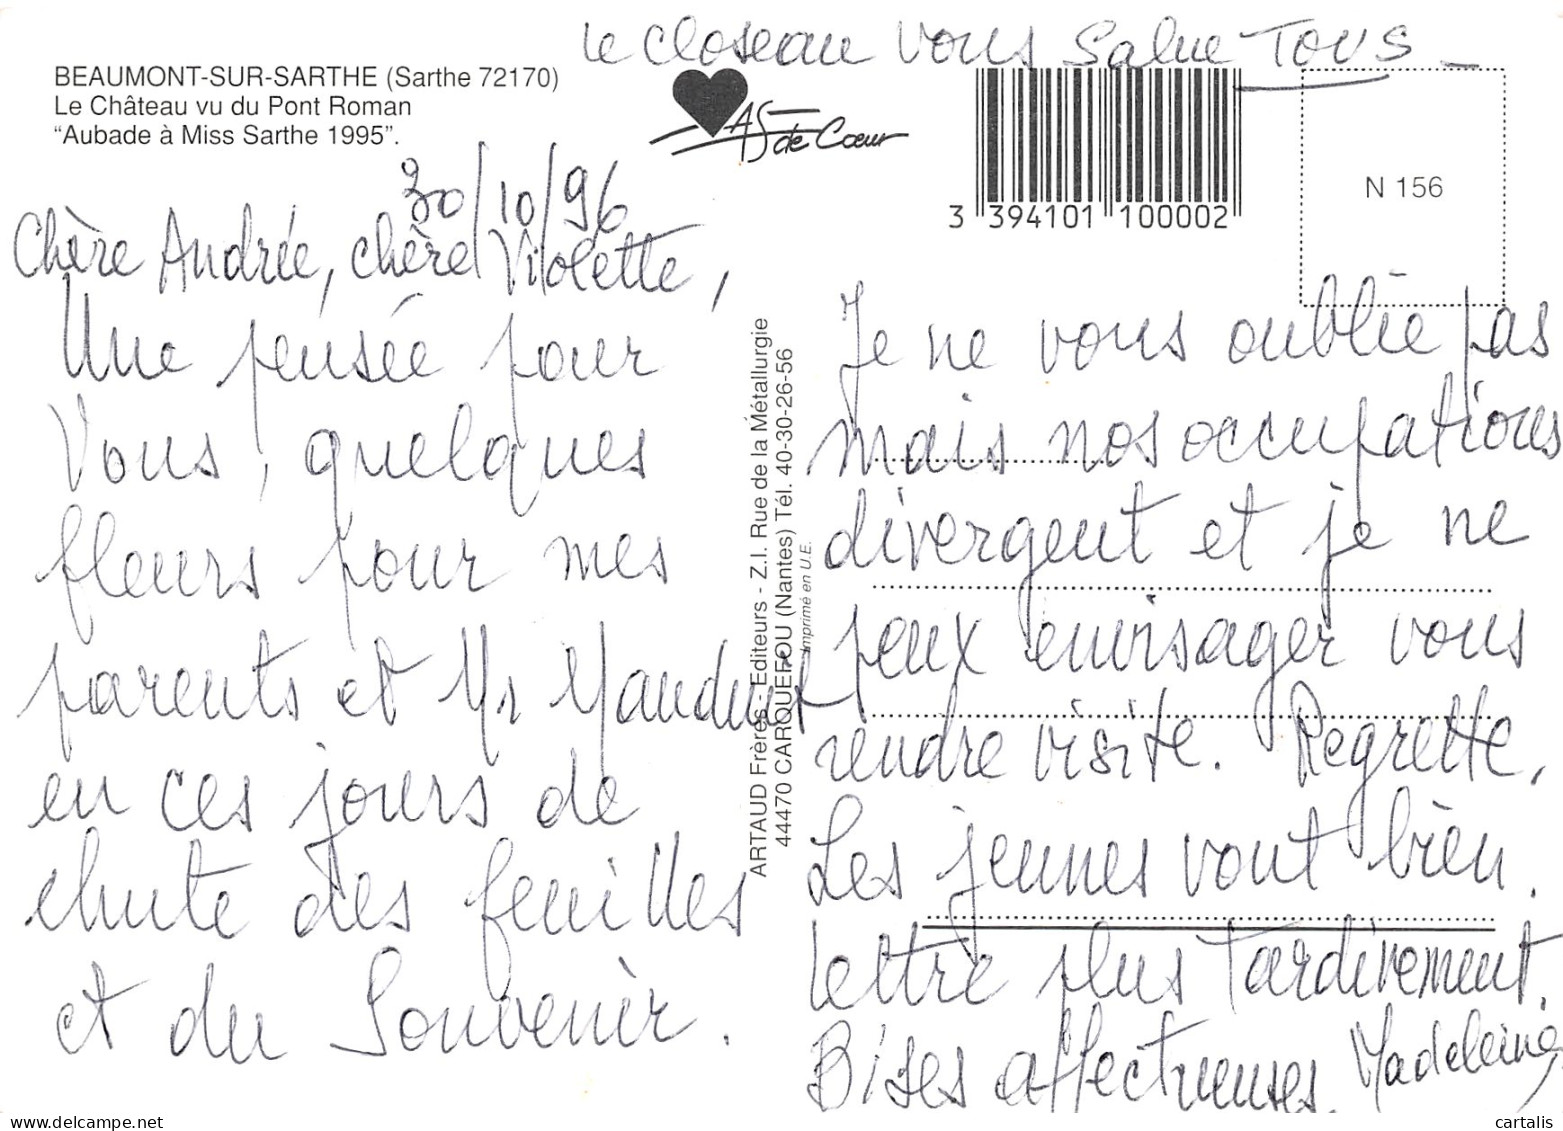 le closeau vous salue Tous_
BEAUMONT-SUR-SARTHE (Sarthe 72170)
Le Château vu du Pont Roman
"Aubade à Miss Sarthe 1995".
AS de Cœur
3 394101 100002
N 156
30/10/96
Chère Andrée, chère Violette,
Une pensée pour
vous, quelques
fleurs pour mes
parents et Mr Mauduit
en ces jours de
chute des feuilles
et du Souvenir.
ARTAUD Frères - Editeurs - Z.I. Rue de la Métallurgie
44470 CARQUEFOU (Nantes) Tél. 40-30-26-56
Imprimé en U.E.
Je ne vous oublie pas
mais nos occupations
divergent et je ne
peux envisager vous
rendre visite. Regrette,
Les jeunes vont bien.
lettre plus tardivement.
Bises affectueuses. Madeleine
cartalis